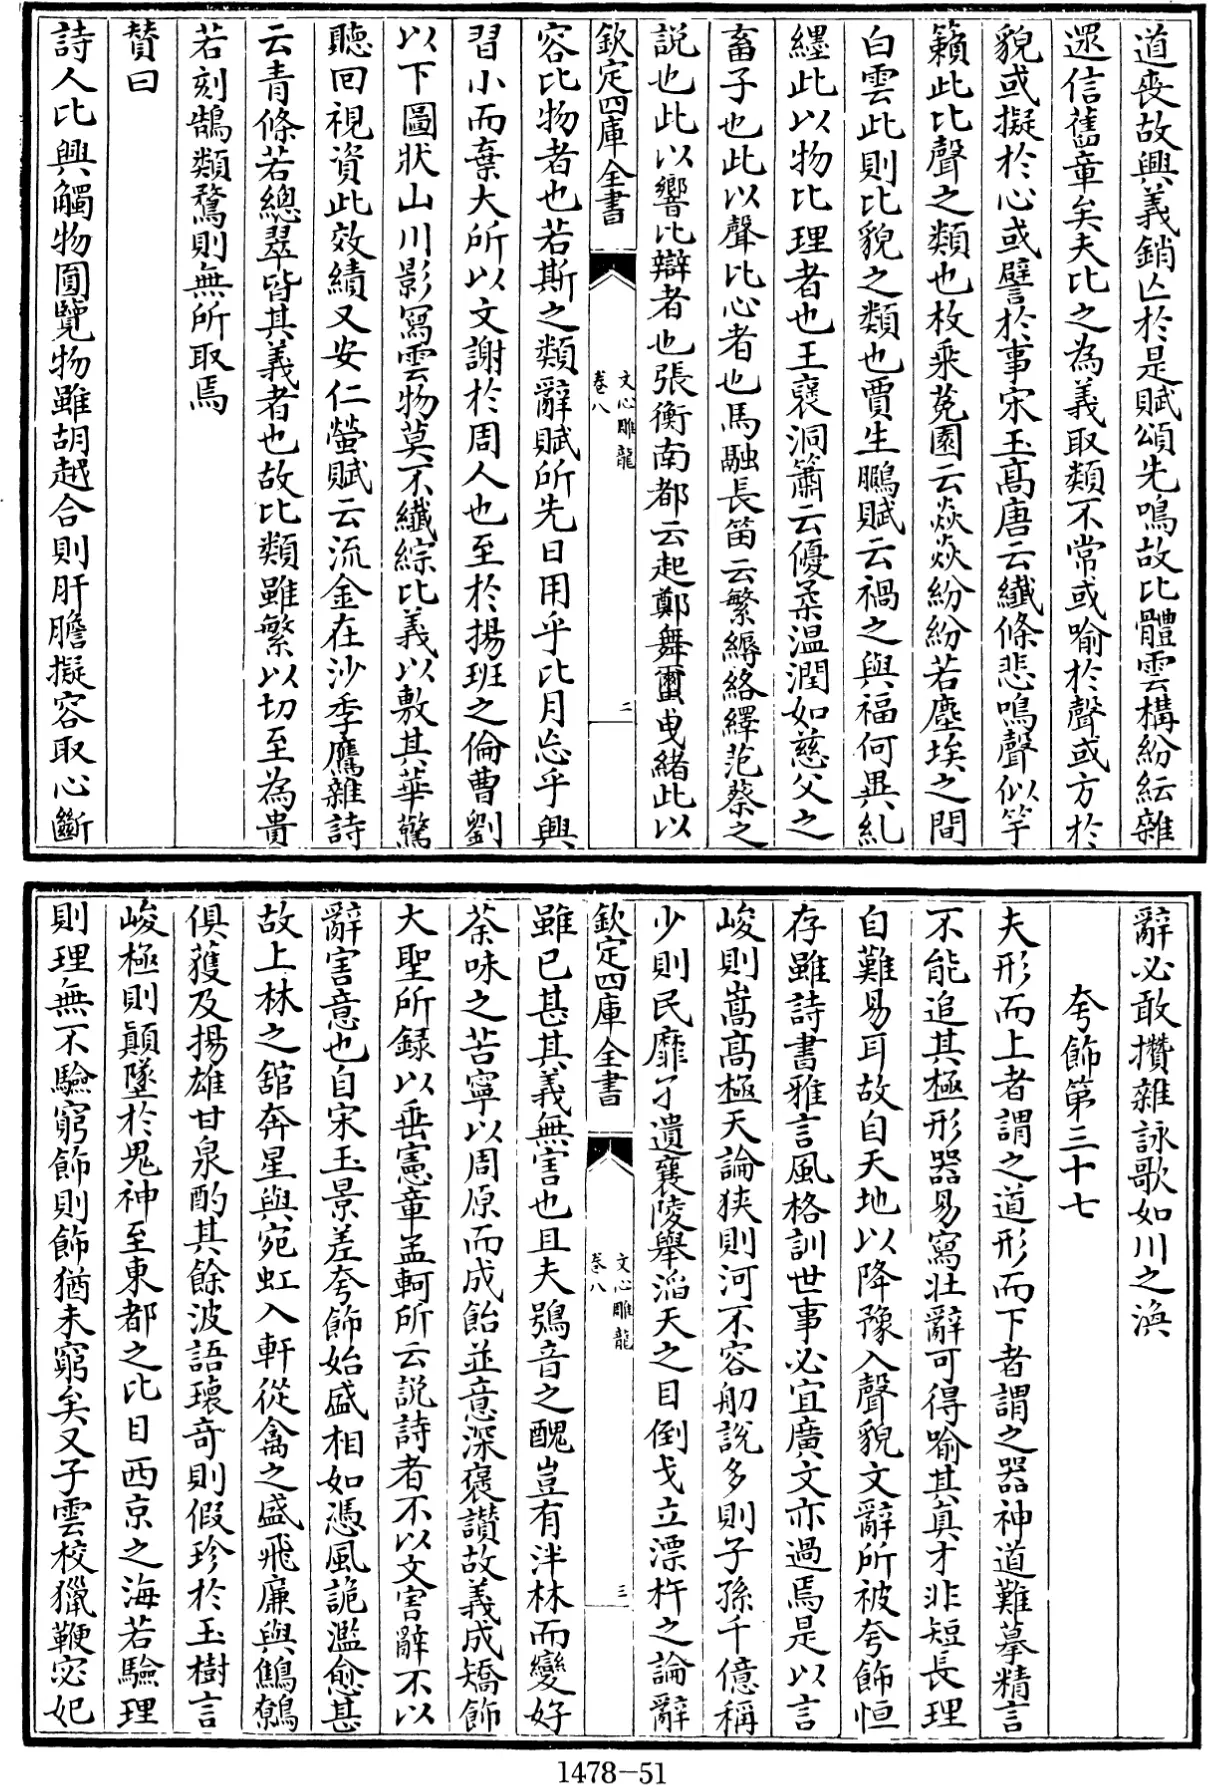 道喪故興義銷亾於是賦頌先鳴故比體雲構紛紜雜
遝信舊章矣夫比之為義取類不常或喻於聲或方於
貌或擬於心或譬於事宋玉髙唐云纎條悲鳴聲似竽
籟此比聲之類也枚乗菟園云焱焱紛紛若塵埃之間
白雲此則比貌之類也賈生鵩賦云禍之與福何異糺
纆此以物比理者也王襃洞簫云優柔温潤如慈父之
畜子也此以聲比心者也馬融長笛云繁縟絡繹范蔡之
説也此以響比辯者也張衡南都云起鄭舞蠒曳緒此以
欽定四庫全書
文心雕龍
卷八
二
容比物者也若斯之類辭賦所先日用乎比月忘乎興
習小而棄大所以文謝於周人也至於揚班之倫曹劉
以下圖狀山川影寫雲物莫不纖綜比義以敷其華驚
聽回視資此效績又安仁螢賦云流金在沙季鷹雜詩
云青條若總翠皆其義者也故比類雖繁以切至為貴
若刻鵠類鶩則無所取焉
贊曰
詩人比興觸物圓覽物雖胡越合則肝膽擬容取心斷
辭必敢攢雜詠歌如川之渙
夸飾第三十七
夫形而上者謂之道形而下者謂之器神道難摹精言
不能追其極形器易寫壯辭可得喻其真才非短長理
自難易耳故自天地以降豫入聲貌文辭所被夸飾恒
存雖詩書雅言風格訓世事必宜廣文亦過焉是以言
峻則嵩髙極天論狹則河不容舠説多則子孫千億稱
少則民靡孑遺襄陵舉滔天之目倒戈立漂杵之論辭
欽定四庫全書
文心雕龍
卷八
三
雖已甚其義無害也且夫鴞音之醜豈有泮林而變好
荼味之苦寧以周原而成飴並意深褒讃故義成矯飾
大聖所録以垂憲章孟軻所云説詩者不以文害辭不以
辭害意也自宋玉景差夸飾始盛相如憑風詭濫愈甚
故上林之舘奔星與宛虹入軒從禽之盛飛廉與鷦鷯
俱獲及揚雄甘泉酌其餘波語瓌竒則假珍於玉樹言
峻極則顛墜於鬼神至東都之比目西京之海若驗理
則理無不驗窮飾則飾猶未窮矣又子雲校獵鞭宓妃
1478-51